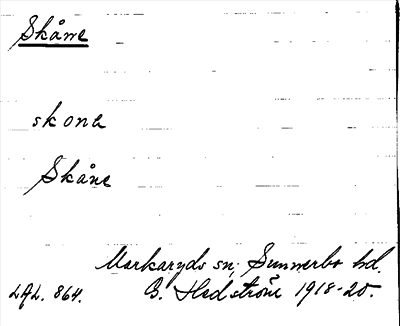 Skåne
skona
Skåne
Markaryds sn, Sunnerbo hd.
LAL. 864. G. Hedström 1918-20.